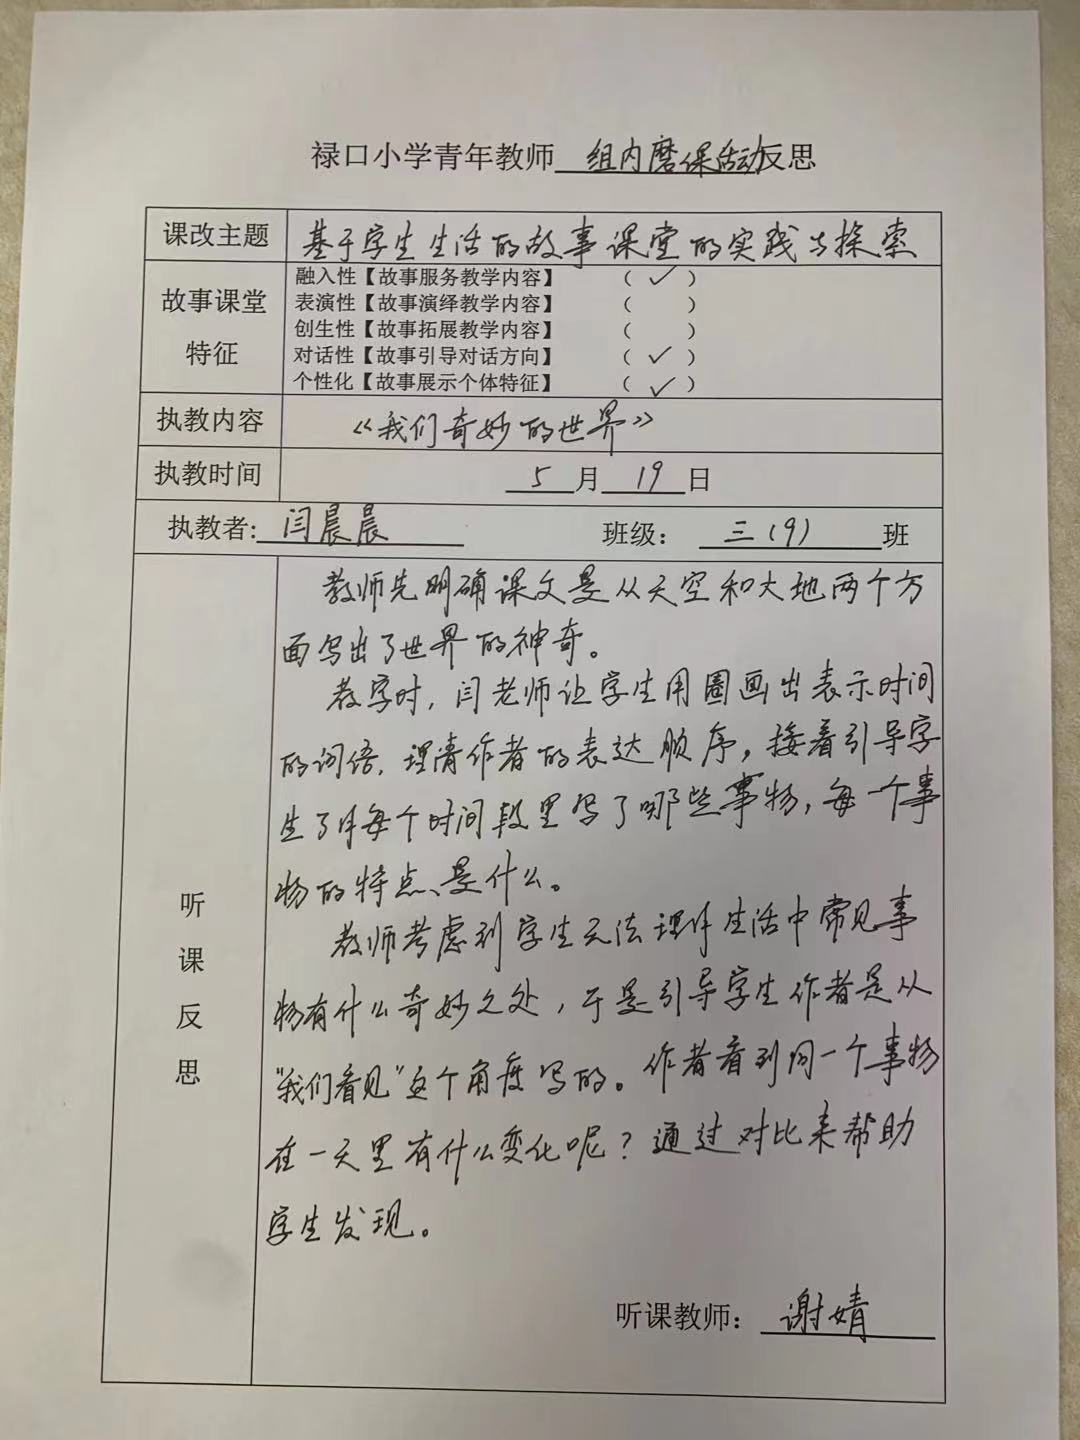 禄口小学青年教师 组内磨课活动反思
课改主题 基于学生生活的故事课堂的实践与探索
故事课堂特征
融入性【故事服务教学内容】 （ ✓ ）
表演性【故事演绎教学内容】 （ ）
创生性【故事拓展教学内容】 （ ）
对话性【故事引导对话方向】 （ ✓ ）
个性化【故事展示个体特征】 （ ✓ ）
执教内容 《我们奇妙的世界》
执教时间 5 月 19 日
执教者: 闫晨晨 班级： 三（9） 班
听课反思
教师先明确课文是从天空和大地两个方
面写出了世界的神奇。
教学时，闫老师让学生用圈画出表示时间
的词语，理清作者的表达顺序，接着引导学
生了解每个时间段里写了哪些事物，每一个事
物的特点是什么。
教师考虑到学生无法理解生活中常见事
物有什么奇妙之处，于是引导学生作者是从
“我们看见”这个角度写的。作者看到同一个事物
在一天里有什么变化呢？通过对比来帮助
学生发现。
听课教师： 谢婧